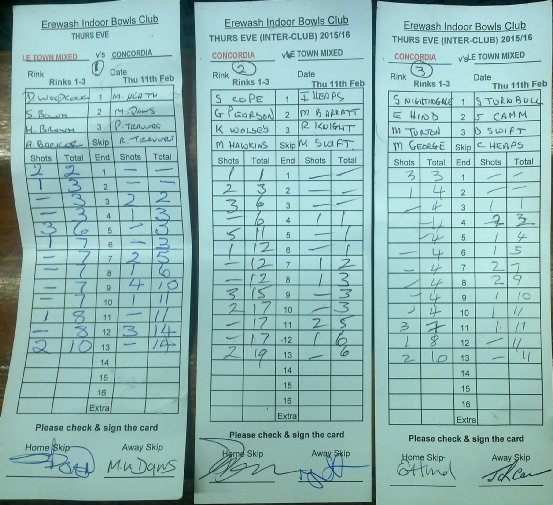 Erewash Indoor Bowls Club
THURS EVE
LE TOWN MIXED v's CONCORDIA
Rink 1 Date
Rinks 1-3 Thu 11th Feb
1
2
H. BROWN 3
Skip
Shots Total End Shots Total
2 2 1 — —
1 3 2 — —
— 3 3 2 2
— 3 4 1 3
3 6 5 — 3
1 7 6 — 3
— 7 7 2 5
— 7 8 1 6
— 7 9 4 10
— 7 10 1 11
1 8 11 — 11
— 8 12 3 14
2 10 13 — 14
14
15
16
Extra
Please check & sign the card
Home Skip Away Skip
Erewash Indoor Bowls Club
THURS EVE (INTER-CLUB) 2015/16
CONCORDIA v's LE TOWN MIXED
Rink 2 Date
Rinks 1-3 Thu 11th Feb
S COPE 1 HEAPS
G PEARSON 2 M BARRATT
K WOLSEY 3 R KNIGHT
M HAWKINS Skip M SWIFT
Shots Total End Shots Total
1 1 1 — —
2 3 2 — —
3 6 3 — —
— 6 4 1 1
5 11 5 — 1
1 12 6 — 1
— 12 7 1 2
— 12 8 1 3
3 15 9 — 3
2 17 10 — 3
— 17 11 2 5
— 17 12 1 6
2 19 13 — 6
14
15
16
Extra
Please check & sign the card
Home Skip Away Skip
Erewash Indoor Bowls Club
THURS EVE (INTER-CLUB) 2015/16
CONCORDIA v's LE TOWN MIXED
Rink 3 Date
Rinks 1-3 Thu 11th Feb
S NIGHTINGALE 1 S TURNBULL
E HIND 2 J CAMM
M TORTON 3 D SWIFT
M GEORGE Skip C HEAPS
Shots Total End Shots Total
3 3 1 — —
1 4 2 — —
— 4 3 1 1
— 4 4 2 3
— 4 5 1 4
— 4 6 1 5
— 4 7 2 7
— 4 8 2 9
— 4 9 1 10
— 4 10 1 11
3 7 11 — 11
1 8 12 — 11
2 10 13 — 11
14
15
16
Extra
Please check & sign the card
Home Skip Away Skip
E Hind